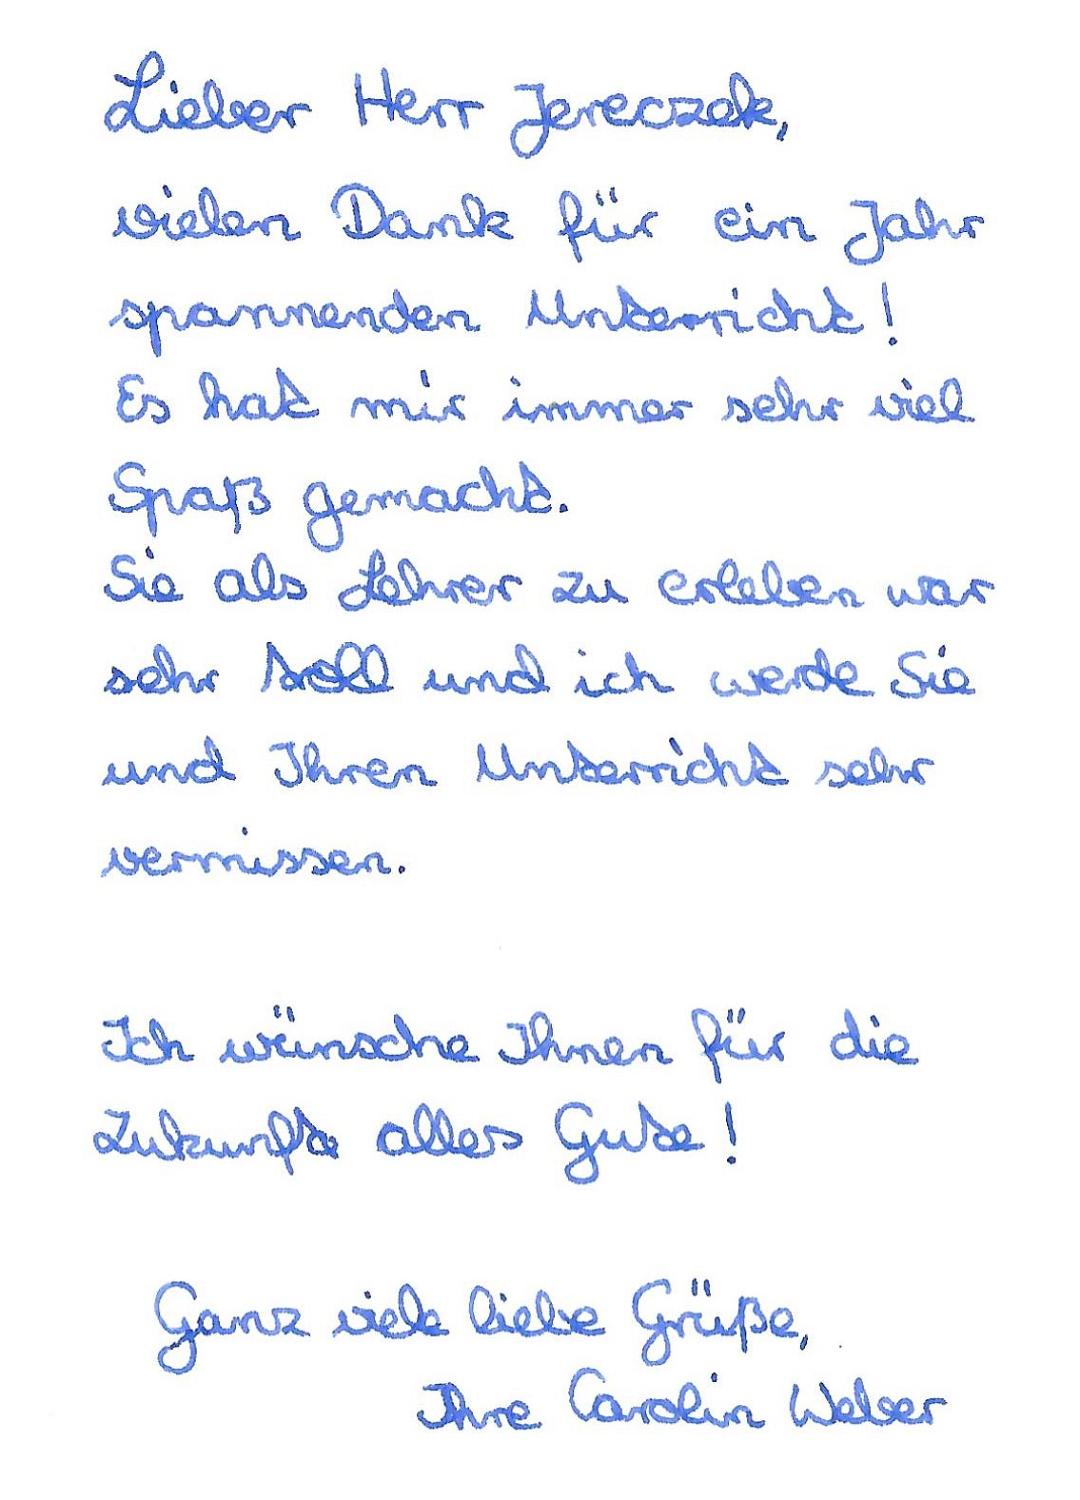 Lieber Herr Jereczek,
vielen Dank für ein Jahr
spannenden Unterricht!
Es hat mir immer sehr viel
Spaß gemacht.
Sie als Lehrer zu erleben war
sehr toll und ich werde Sie
und Ihren Unterricht sehr
vermissen.
Ich wünsche Ihnen für die
Zukunft alles Gute!
Ganz viele liebe Grüße,
Ihre Carolin Weber